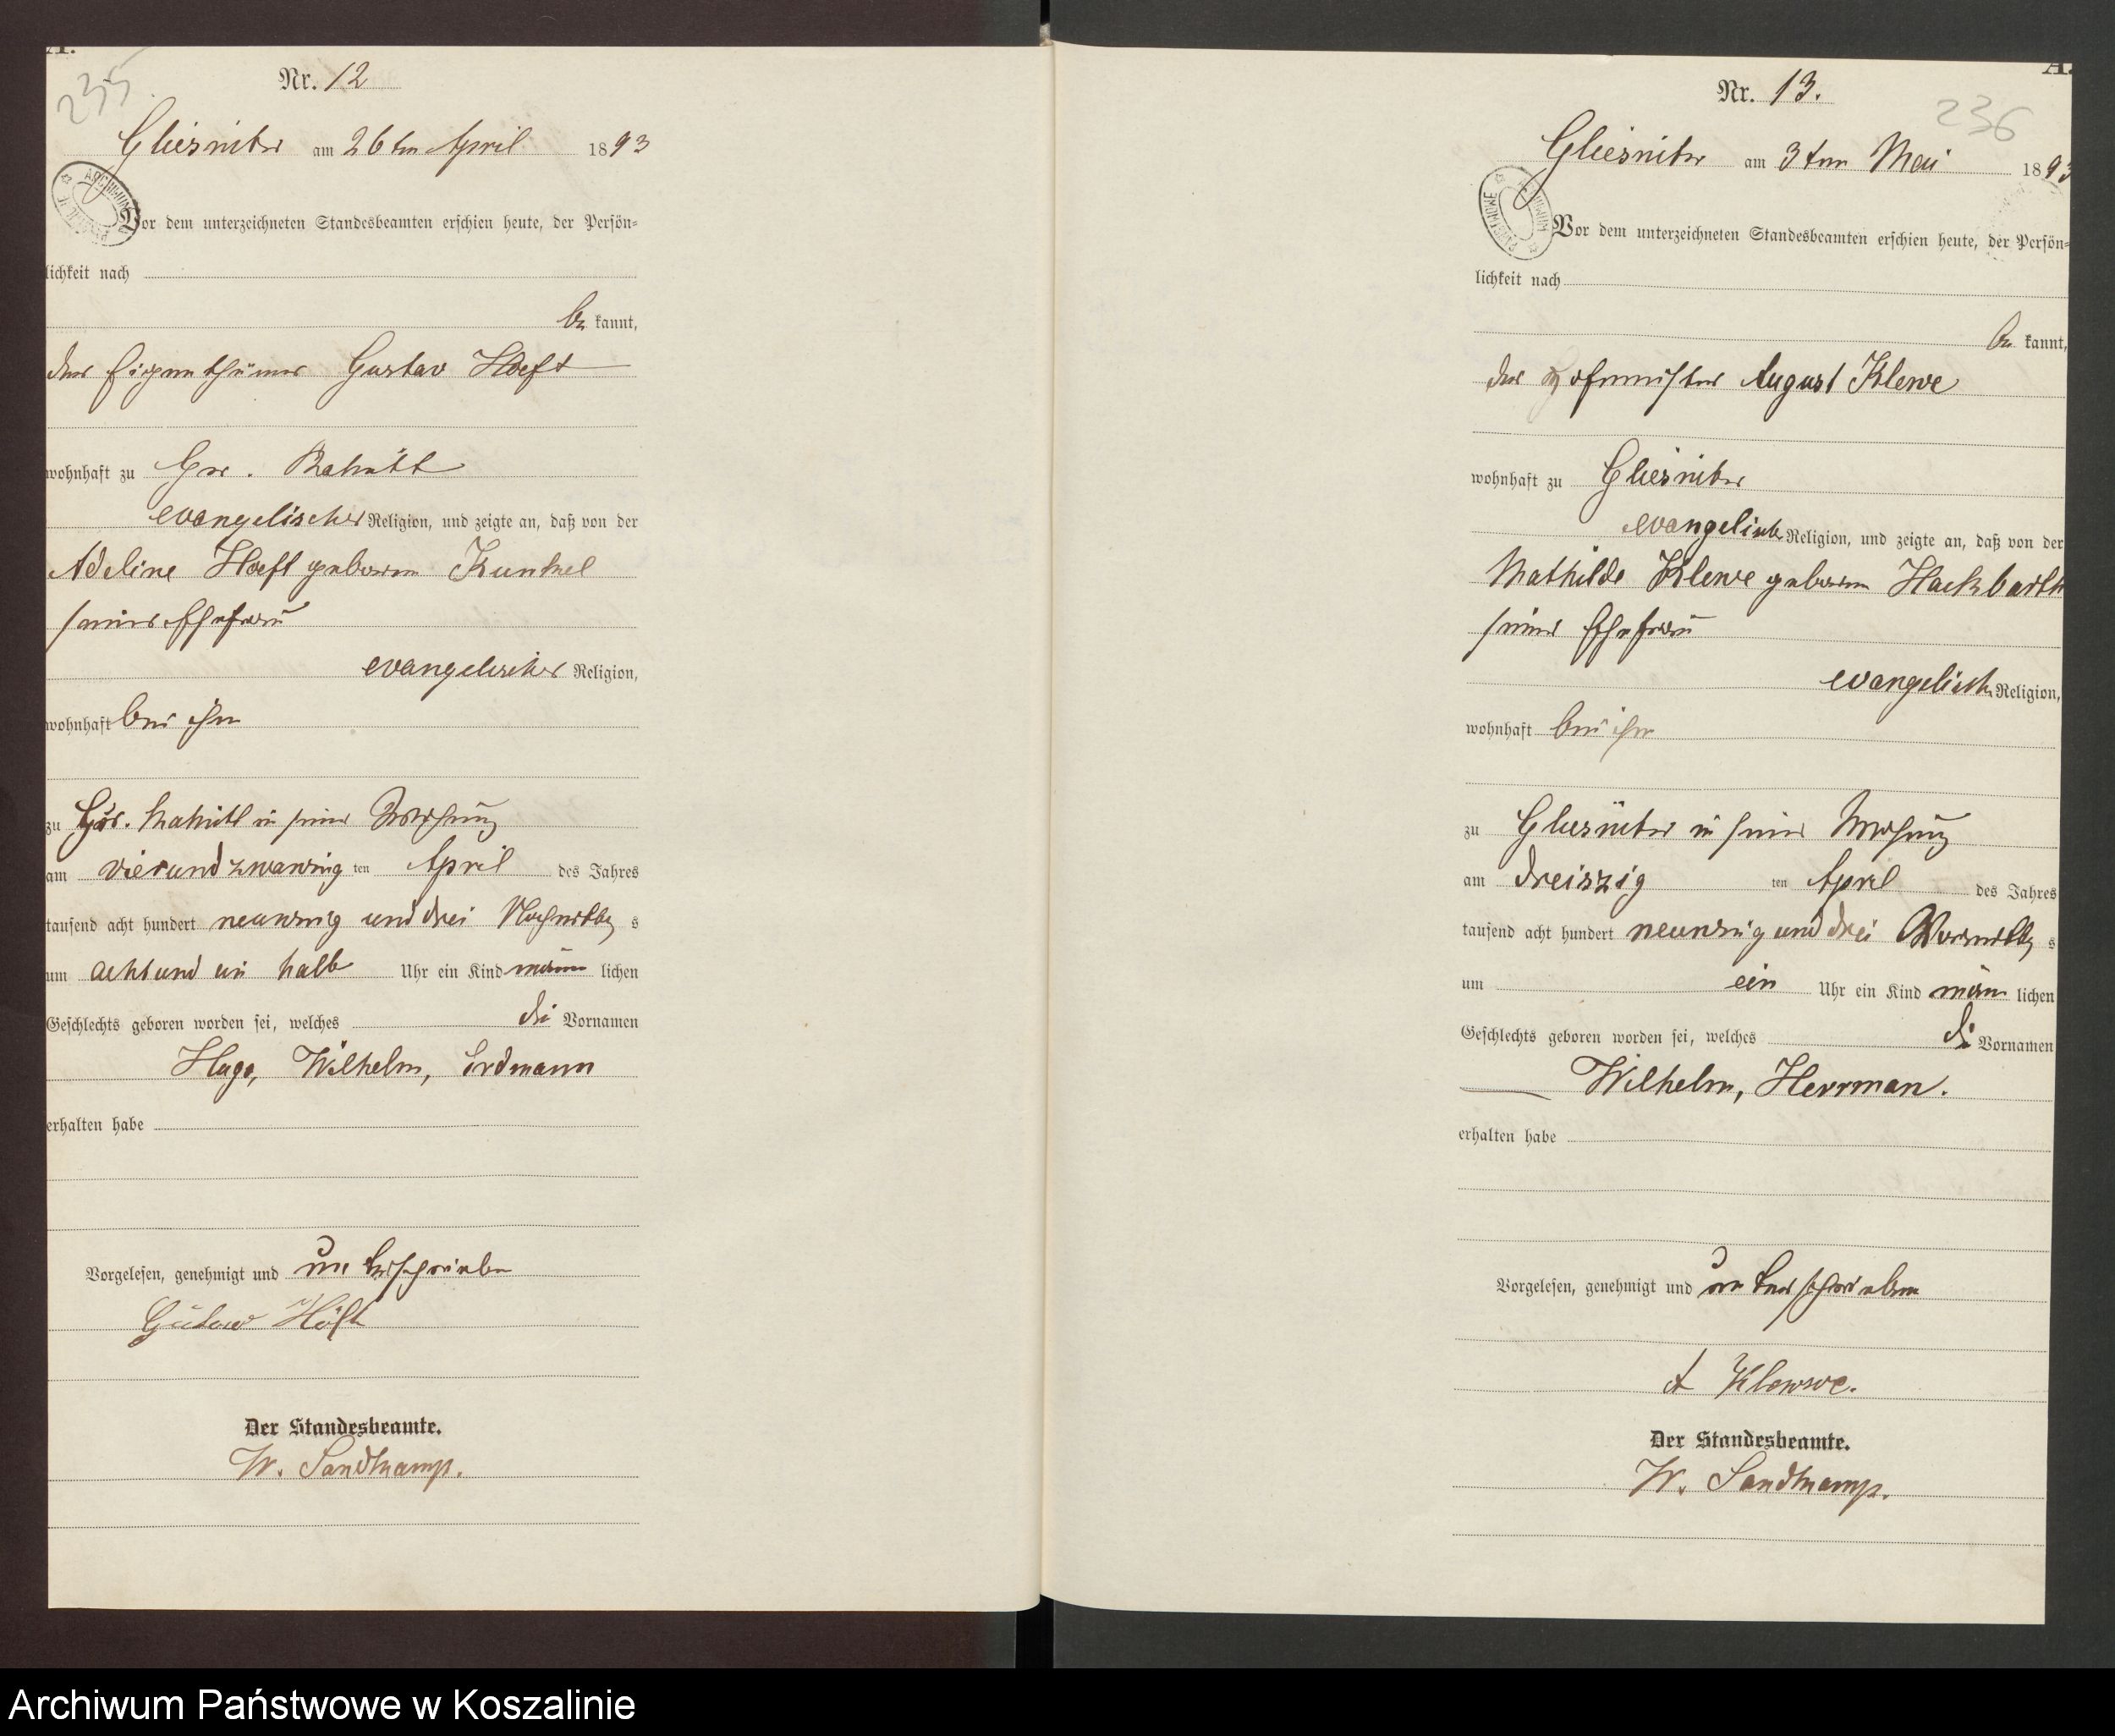 A.
235
Nr. 12
Gliesnitz am 26ten April 1893
Vor dem unterzeichneten Standesbeamten erschien heute, der Persön=
lichkeit nach
be kannt,
der Eigenthümer Gustav Hoeft
wohnhaft zu Gr.
evangelischer Religion, und zeigte an, daß von der
Adeline Hoeft geborenen Kunkel
seiner Ehefrau
evangelischer Religion,
wohnhaft bei ihm
zu Gr. in seiner Wohnung
am vierundzwanzig ten April des Jahres
tausend acht hundert neunzig und drei Nachmittag s
um acht und ein halb Uhr ein Kind männ lichen
Geschlechts geboren worden sei, welches die Vornamen
Hugo, Wilhelm, Erdmann
erhalten habe
Vorgelesen, genehmigt und unterschrieben
Gustav Höft
Der Standesbeamte.
W. Sandkamp.
A.
236
Nr. 13.
Gliesnitz am 3ten Mai 1893
Vor dem unterzeichneten Standesbeamten erschien heute, der Persön=
lichkeit nach
be kannt,
der Hofmeister August Klewe
wohnhaft zu Gliesnitz
evangelisch Religion, und zeigte an, daß von der
Mathilde Klewe geborenen Hackbarth
seiner Ehefrau
evangelisch Religion,
wohnhaft bei ihm
zu Gliesnitz in seiner Wohnung
am dreiszig ten April des Jahres
tausend acht hundert neunzig und drei Vormittag s
um ein Uhr ein Kind männ lichen
Geschlechts geboren worden sei, welches die Vornamen
Wilhelm, Herrman.
erhalten habe
Vorgelesen, genehmigt und unterschrieben
A Klewe.
Der Standesbeamte.
W. Sandkamp.
Archiwum Państwowe w Koszalinie